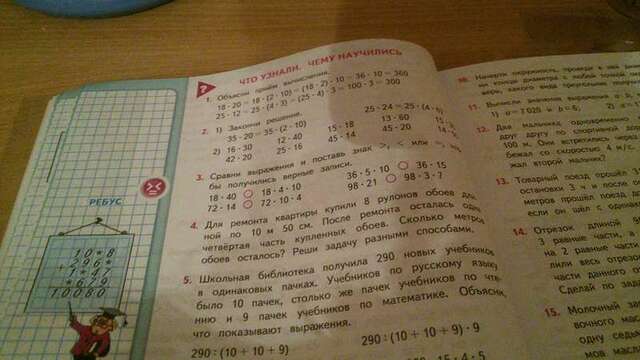 ЧТО УЗНАЛИ. ЧЕМУ НАУЧИЛИСЬ
?
1. Объясни приём вычисления.
18 · 20 = 18 · (2 · 10) = (18 · 2) · 10 = 36 · 10 = 360
25 · 12 = 25 · (4 · 3) = (25 · 4) · 3 = 100 · 3 = 300
2. 1) Закончи решение.
35 · 20 = 35 · (2 · 10) 25 · 24 = 25 · (4 ·
2) 16 · 30 12 · 40 15 · 18 13 · 60 15 ·
42 · 20 25 · 16 45 · 14 45 · 20 14 ·
3. Сравни выражения и поставь знак >, < или =,
бы получились верные записи.
18 · 40 18 · 4 · 10 36 · 5 · 10 36 · 15
72 · 14 72 · 10 · 4 98 · 21 98 · 3 · 7
4. Для ремонта квартиры купили 8 рулонов обоев
ной по 10 м 50 см. После ремонта осталась одна
четвёртая часть купленных обоев. Сколько метров
обоев осталось? Реши задачу разными способами.
5. Школьная библиотека получила 290 новых учебников
в одинаковых пачках. Учебников по русскому языку
было 10 пачек, столько же пачек учебников по чте-
нию и 9 пачек учебников по математике. Объясни,
что показывают выражения.
290 : (10 + 10 + 9) 290 : (10 + 10 + 9) · 9
РЕБУС
10*8
296*
+ 1*47
*679
10080
10. Начерти окружность, проведи в ней
ми концы диаметра с любой точкой
мерь, какого вида треугольник
11. Вычисли значения выражений
1) a = 7 020 и b = 6; 2)
12. Два мальчика одновременно
друг другу по спортивной
100 м. Они встретились через
бежал со скоростью 4 м/с.
жал второй мальчик?
13. Товарный поезд прошёл
остановки 3 ч и после
метров прошёл поезд
если он шёл с одина
14. Отрезок длиной
3 равные части,
на 2 равные
лили весь отрезок
части данного
Сделай по
15. Молочный
вочного мас
одной
мов масл